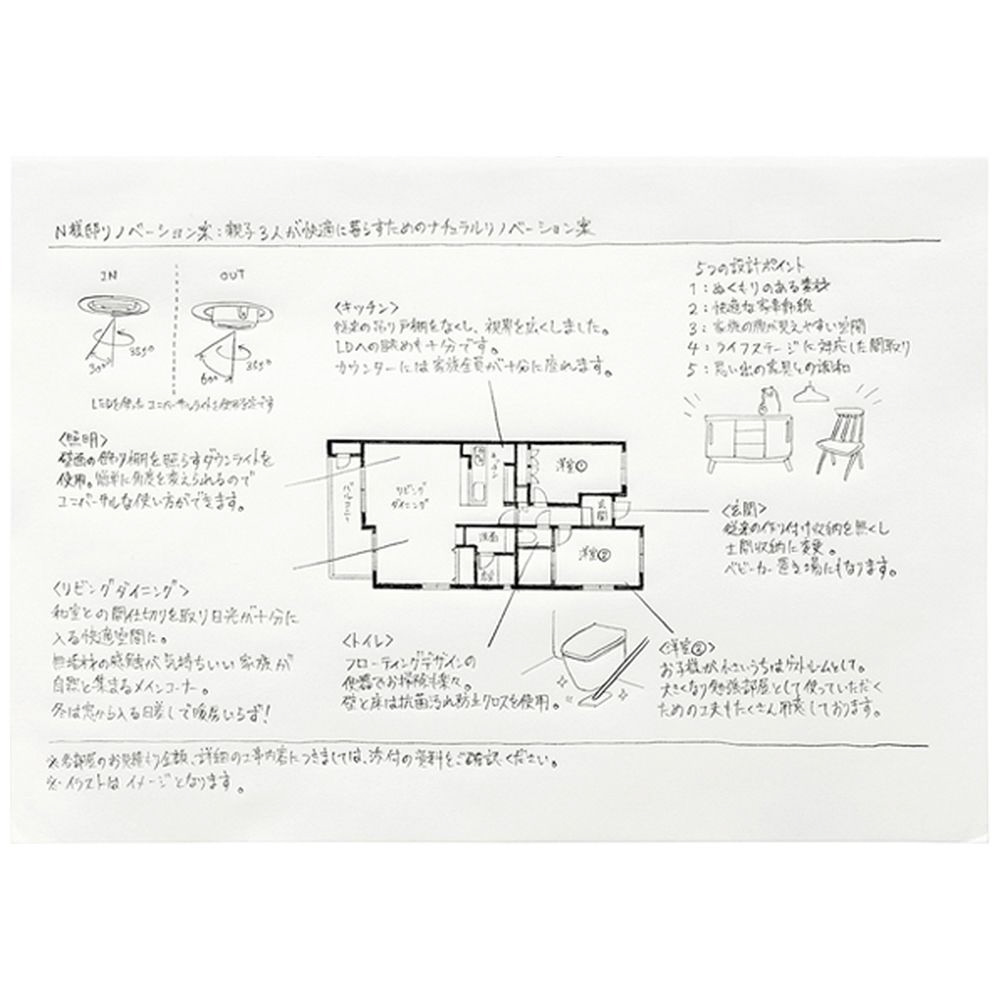 N様邸リノベーション案：親子3人が快適に暮らすためのナチュラルリノベーション案
IN
OUT
30°
355°
60°
355°
LEDを使ったユニバーサルライトを使用予定です
〈照明〉
壁面の飾り棚を照らすダウンライトを
使用。簡単に角度を変えられるので
ユニバーサルな使い方ができます。
〈リビングダイニング〉
和室との間仕切りを取り日光が十分に
入る快適空間に。
無垢材の感触が気持ちいい家族が
自然と集まるメインコーナー。
冬は窓から入る日差しで暖房いらず！
〈キッチン〉
従来の吊り戸棚をなくし、視界を広くしました。
LDへの眺めも十分です。
カウンターには家族全員が十分に座れます。
バルコニー
リビング
ダイニング
キッチン
洋室①
玄関
洗面
洋室②
〈トイレ〉
フローティングデザインの
便器でお掃除も楽々。
壁と床は抗菌汚れ防止クロスを使用。
5つの設計ポイント
1：ぬくもりのある素材
2：快適な家事動線
3：家族の顔が見えやすい空間
4：ライフステージに対応した間取り
5：思い出の家具との調和
〈玄関〉
従来の作り付け収納を無くし
土間収納に変更。
ベビーカー置き場にもなります。
〈洋室②〉
お子様が小さいうちはゲストルームとして。
大きくなり勉強部屋として使っていただく
ための工夫もたくさん用意しております。
※各部屋のお見積もり金額、詳細の工事内容につきましては、添付の資料をご確認ください。
※イラストはイメージとなります。